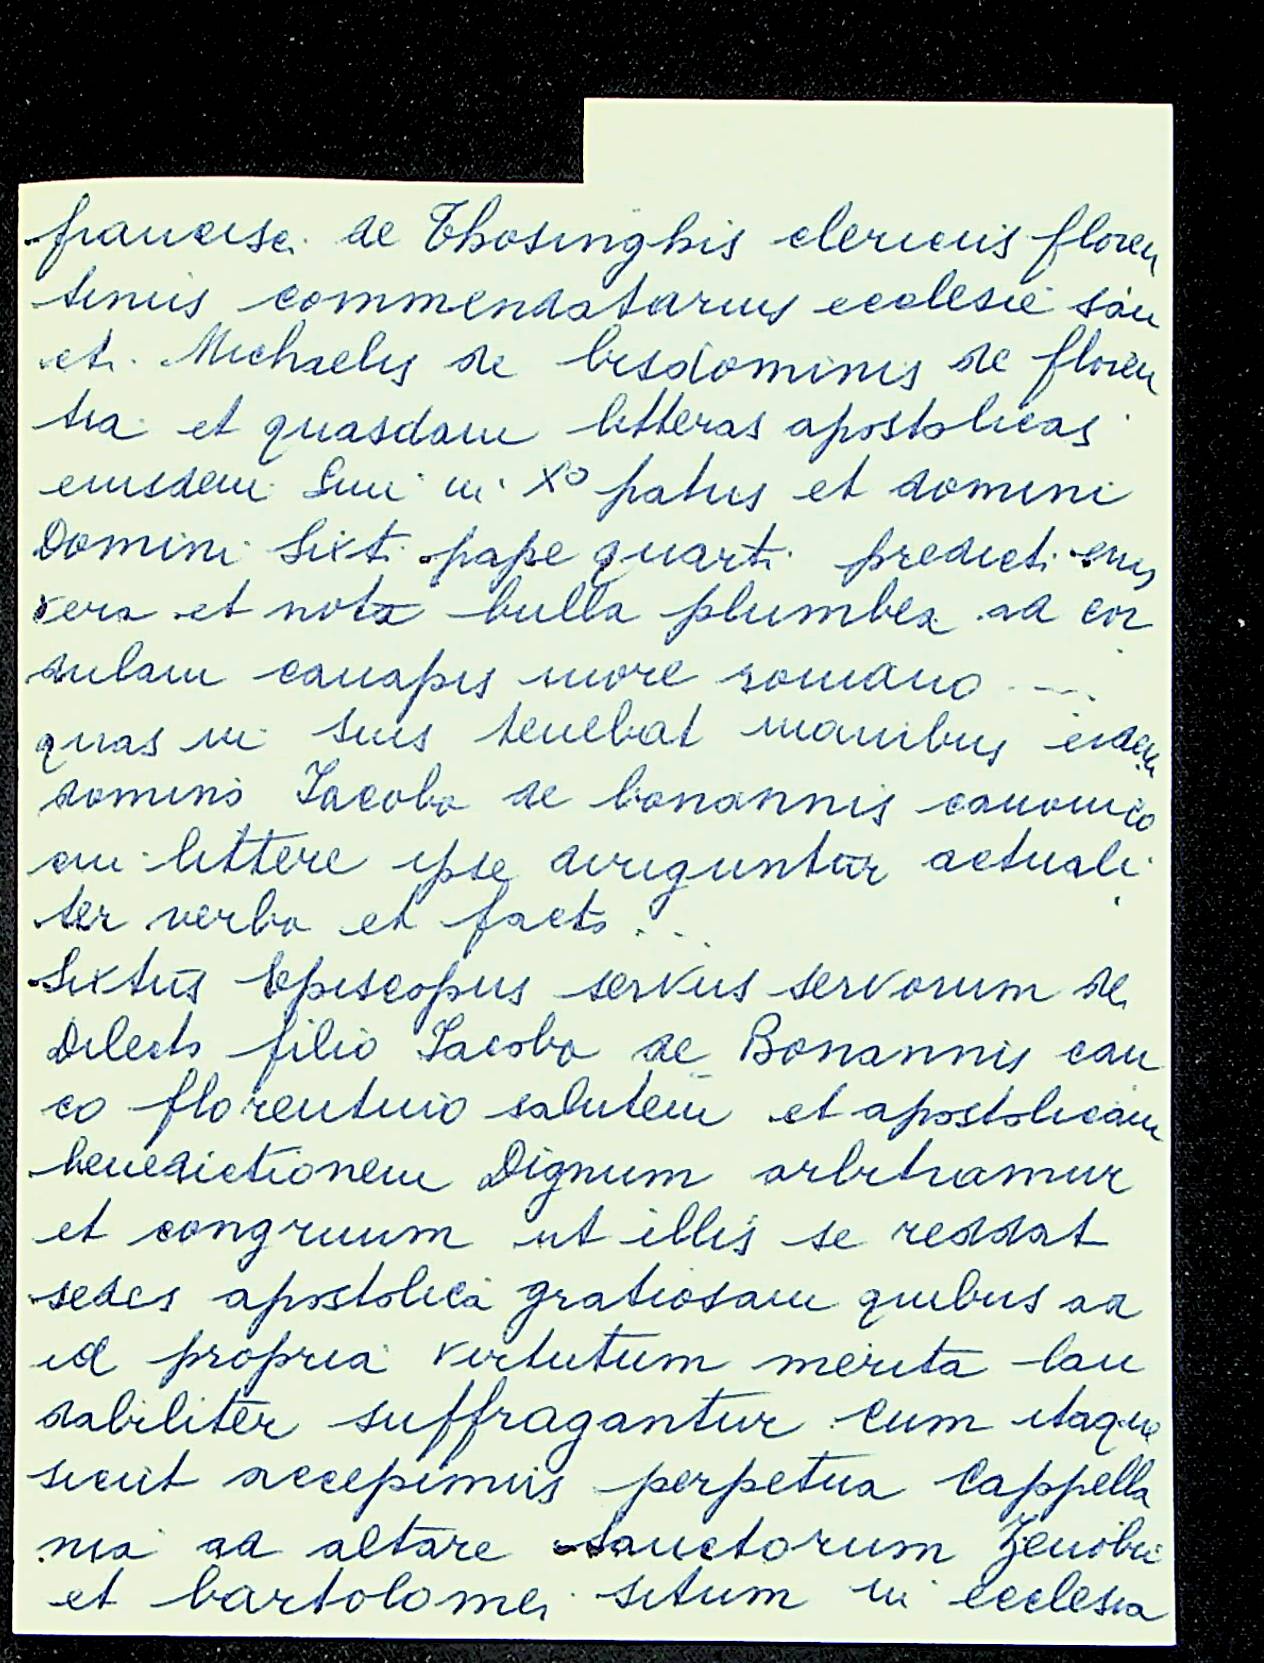 francisci de Thosinghis clericus floren
tinus commendatarius ecclesie san
cti Michaelis de bisdominis de floren
tia et quasdam litteras apostolicas
eiusdem Smi in Xo patris et domini
Domini Sixti pape quarti predicti eius
vera et nota bulla plumbea ad cor
dulam canapis more romano ....
quas in suis tenebat manibus eidem
domino Jacobo de bonannis canonico
cui littere ipse diriguntur actuali
ter verbo et facto ...
Sixtus Episcopus servus servorum dei
Dilecto filio Jacobo de Bonannis can
co florentino salutem et apostolicam
benedictionem Dignum arbitramur
et congruum ut illis se reddat
sedes apostolica gratiosam quibus ad
id propria virtutum merita lau
dabiliter suffragantur Cum itaque
sicut accepimus perpetua Cappella
nia ad altare sanctorum Zenobii
et bartolomei situm in ecclesia